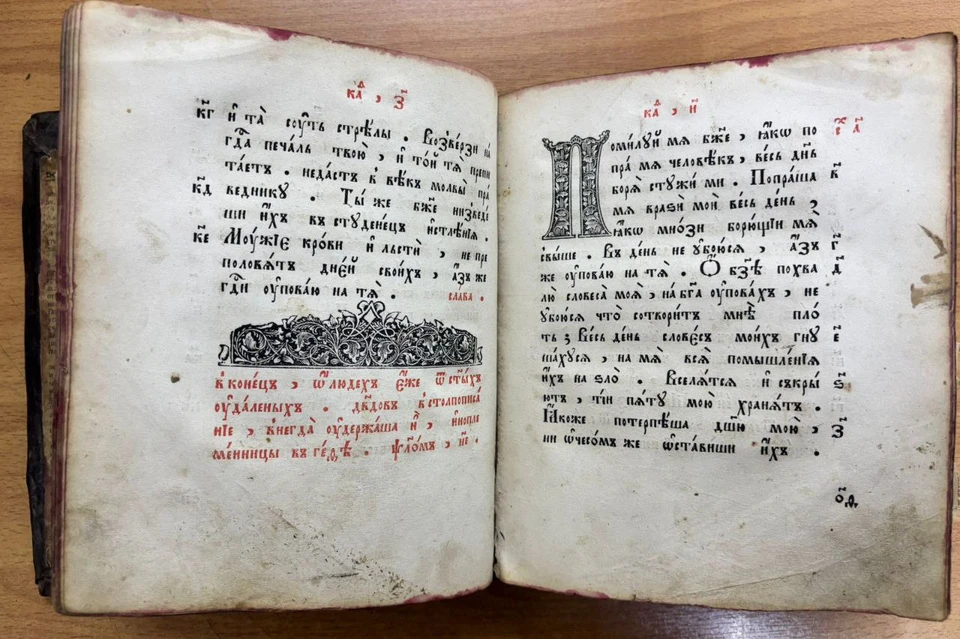 каⷴ , з҃
к҃г и҆ та̀ соуⷮть стрѣлы . Возверзи на
гдⷭ҇а печаль твою̀ , и҆ то́й тѧ̀ препи
таетъ . недастъ в вѣкъ молвы̀ пра
к҃д веднику . Ты̀ же бж҃е низведе
ши и҆хъ въ студенецъ и҆стлѣнїѧ .
к҃е Моужїе кро́ви и҆ льстѝ , не пре
половѧтъ дне́й свои́хъ , а҆́зъ же
гдⷭ҇и оу҆повáю на тѧ̀ . сла́ва .
в коне́цъ , ѿ люде́хъ е҆́же ѿ ст҃ы́хъ
оу҆дале́ныхъ . дв҃довъ в столпописа́
нїе , внегда̀ оу҆держаша и҆̀ , и҆нопле
ме́нницы въ ге́фѣ . ѱало́мъ , н҃е .
каⷴ , и҃
Поми́луй мѧ бж҃е , ꙗ҆́кѡ по с҃т а҃
пра̀ мѧ человѣ́къ , весь дн҃ь
борѧ̀ стужи́ ми . Попра́ша в҃
мѧ вразѝ моѝ весь де́нь ,
ꙗ҆́кѡ мно́ѕи бо́рющїи мѧ̀
свыше . Въ день не оубоюсѧ , а҆́зъ г҃
же оу҆повáю на тѧ̀ . Ѽ бз҃ѣ похва д҃
лю̀ словеса̀ моѧ̀ , на бг҃а оу҆пова́хъ , не
убоюсѧ что̀ сотвори́тъ мнѣ̀ пло́
ть ; Весь де́нь слове́съ мои́хъ гну е҃
ша́хусѧ , на мѧ̀ всѧ̀ помышле́нїѧ
и҆́хъ на ѕло̀ . Вселѧ́тсѧ и҆ съкры́ ѕ҃
ютъ , ті́и пѧту мою̀ хранѧ́тъ .
Ꙗ҆́коже потерпѣ́ша дш҃ю мою̀ , з҃
ни ѡ҆ чесо́мъ же ѿста́виши и҆́хъ .